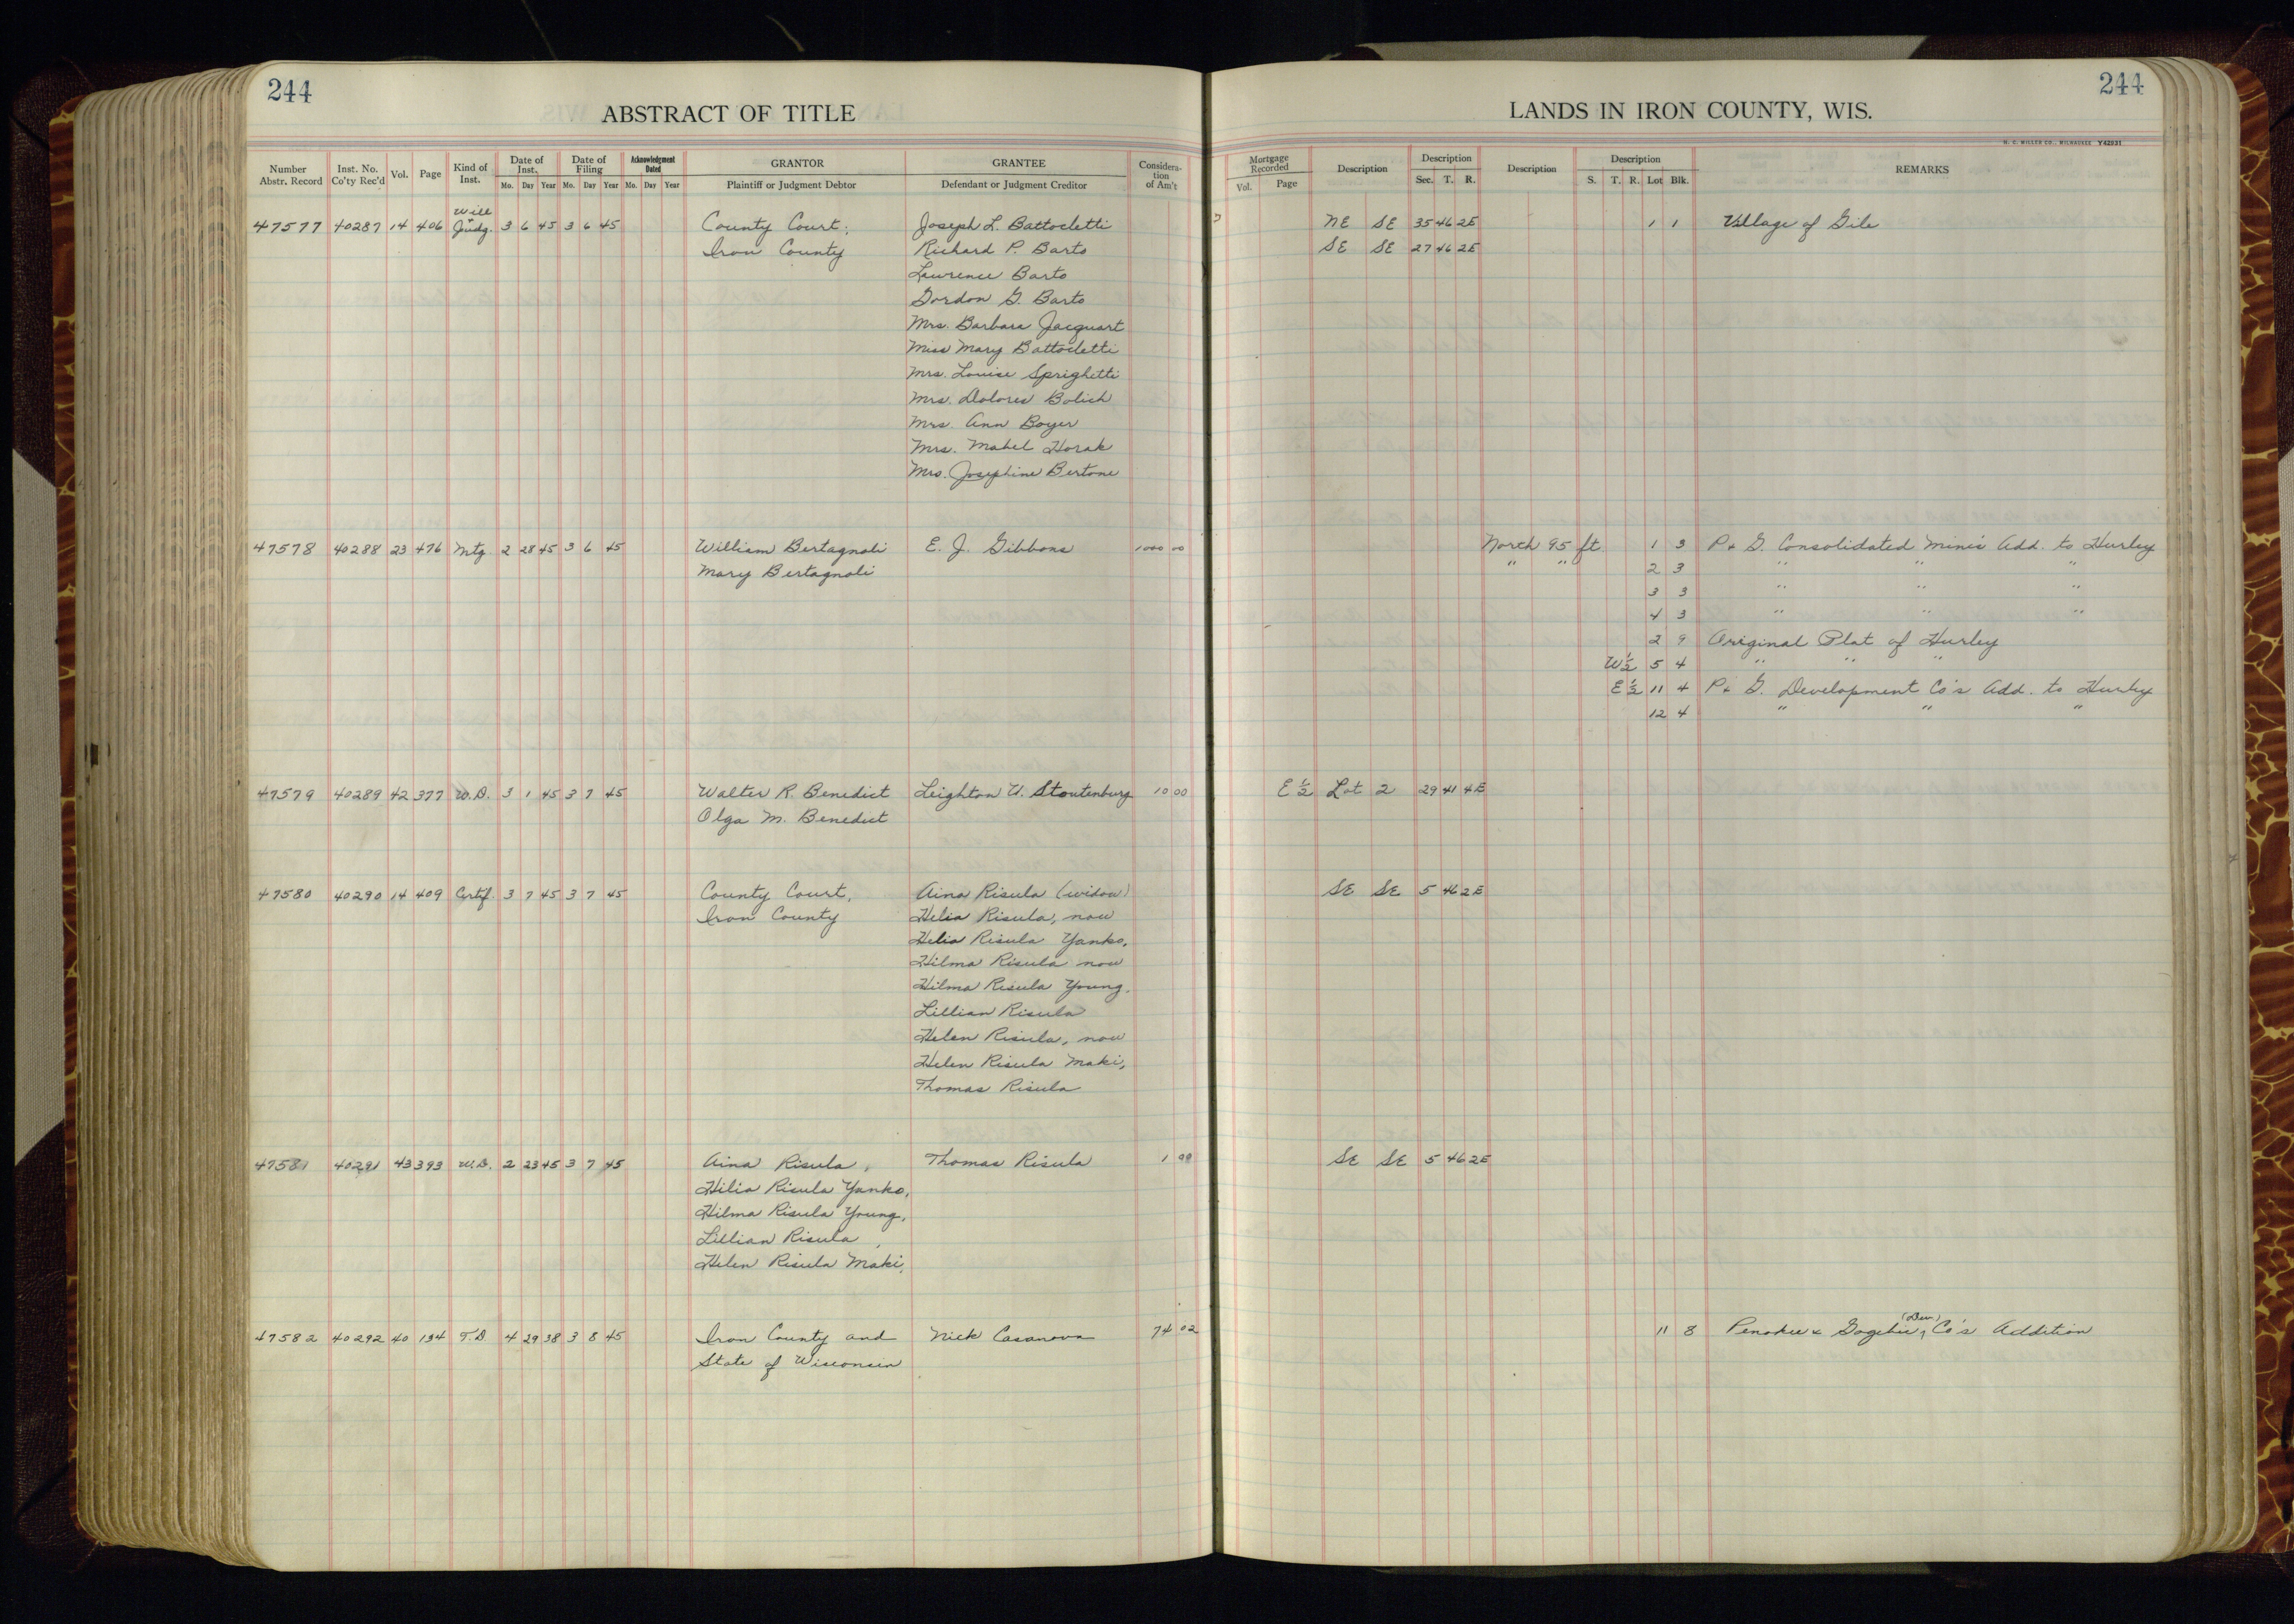 244
244
ABSTRACT OF TITLE
LANDS IN IRON COUNTY, WIS.
H. C. MILLER CO., MILWAUKEE Y42931
Number Abstr. Record | Inst. No. Co'ty Rec'd | Vol. | Page | Kind of Inst. | Date of Inst. Mo. Day Year | Date of Filing Mo. Day Year | Acknowledgment Dated Mo. Day Year | GRANTOR Plaintiff or Judgment Debtor | GRANTEE Defendant or Judgment Creditor | Consideration of Am't | Mortgage Recorded Vol. Page | Description | Description Sec. T. R. | Description | Description S. T. R. Lot Blk. | REMARKS
Will
47577 40287 14 406 Judg. 3 6 45 3 6 45 County Court, Joseph L. Battocletti NE SE 35 46 2E 1 1 Village of Gile
Iron County Richard P. Barto SE SE 27 46 2E
Lawrence Barto
Gordon G. Barto
Mrs. Barbara Jacquart
Miss Mary Battocletti
Mrs. Louise Sprighetti
Mrs. Dolores Bolich
Mrs. Ann Boyer
Mrs. Mabel Horak
Mrs. Josephine Bertone
47578 40288 23 476 Mtg 2 28 45 3 6 45 William Bertagnoli E. J. Gibbons 1000 00 North 95 ft. 1 3 P & G. Consolidated Mine's Add. to Hurley
Mary Bertagnoli " " 2 3 " " "
3 3 " " "
4 3 " " "
2 9 Original Plat of Hurley
W½ 5 4 " " "
E½ 11 4 P & G. Development Co's Add. to Hurley
12 4 " " "
47579 40289 42 377 W.D. 3 1 45 3 7 45 Walter R. Benedict Leighton U. Stoutenburg 10 00 E½ Lot 2 29 41 4E
Olga M. Benedict
47580 40290 14 409 Certif. 3 7 45 3 7 45 County Court, Aina Risula (widow) SE SE 5 46 2E
Iron County Helia Risula, now
Helia Risula Yanko,
Hilma Risula now
Hilma Risula Young.
Lillian Risula
Helen Risula, now
Helen Risula Maki,
Thomas Risula
47581 40291 43 393 W.D. 2 23 45 3 7 45 Aina Risula, Thomas Risula 1 00 SE SE 5 46 2E
Hilia Risula Yanko,
Hilma Risula Young,
Lillian Risula,
Helen Risula Maki,
(Dev.)
47582 40292 40 134 T.D 4 29 38 3 8 45 Iron County and Nick Casanova 74 02 11 8 Penokee & Gogebic, Co's Addition
State of Wisconsin